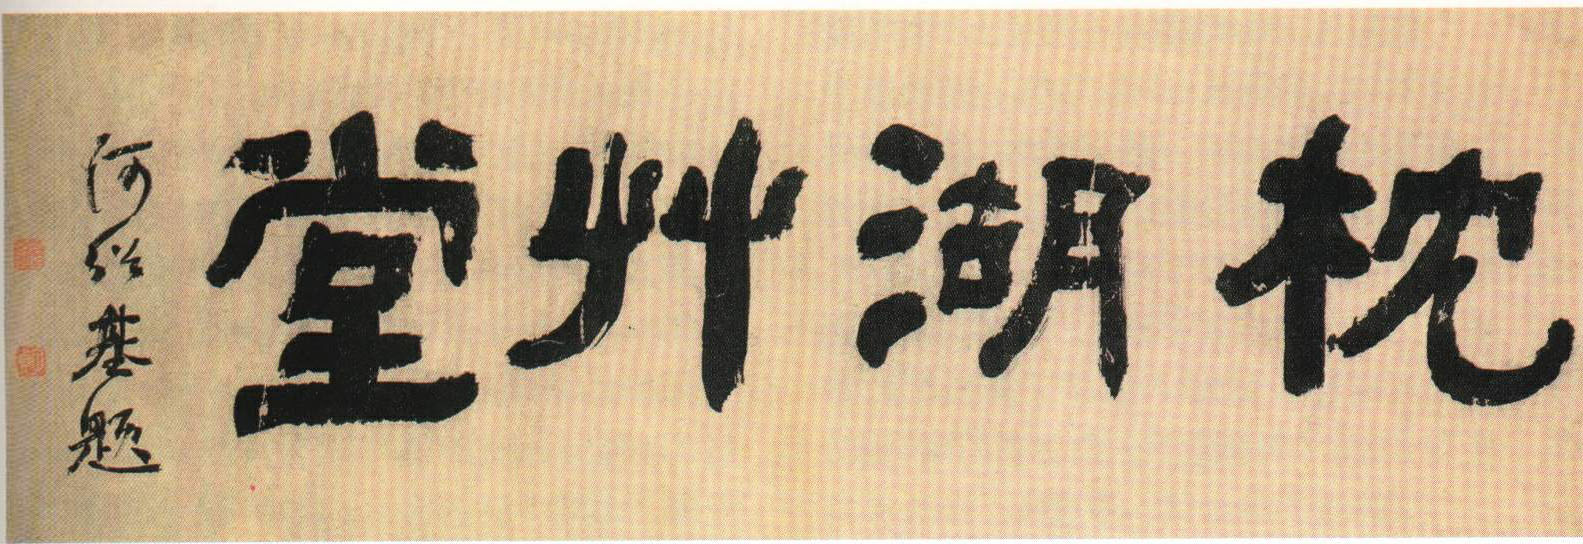 枕湖艸堂
何紹基題